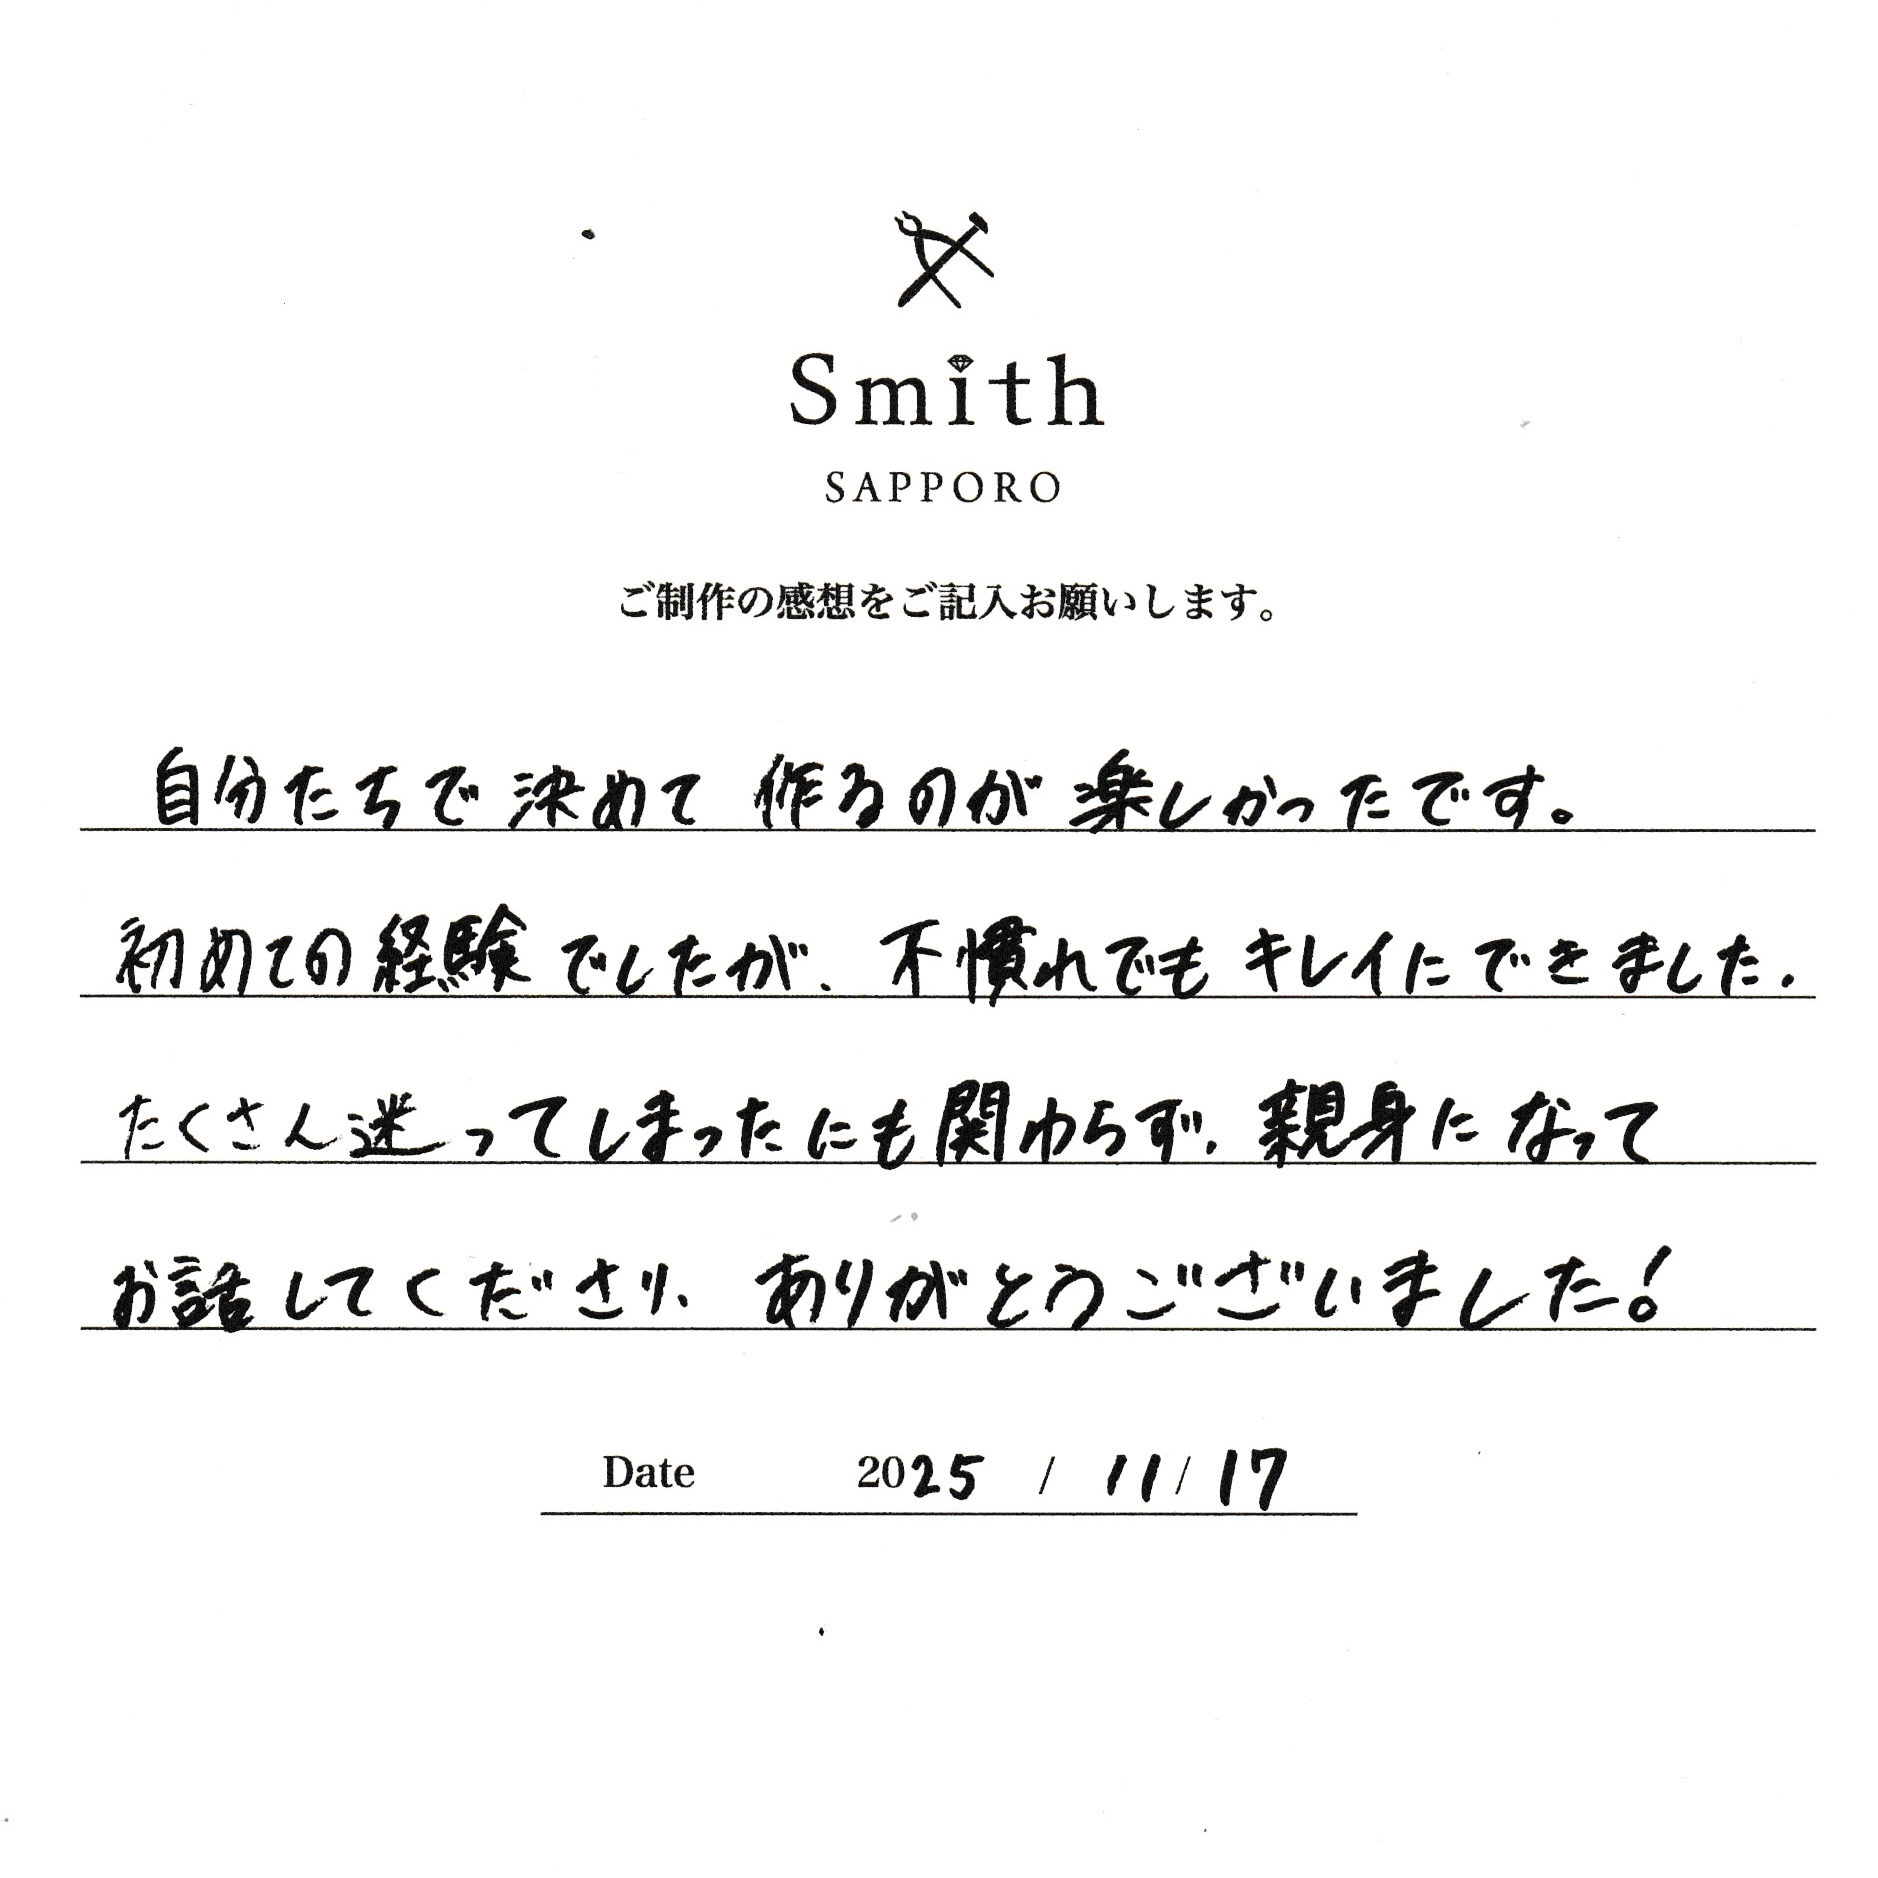 Smith
SAPPORO
ご制作の感想をご記入お願いします。
自分たちで決めて作るのが楽しかったです。
初めての経験でしたが、不慣れでもキレイにできました.
たくさん迷ってしまったにも関わらず、親身になって
お話してくださり、ありがとうございました!
Date 2025 / 11 / 17